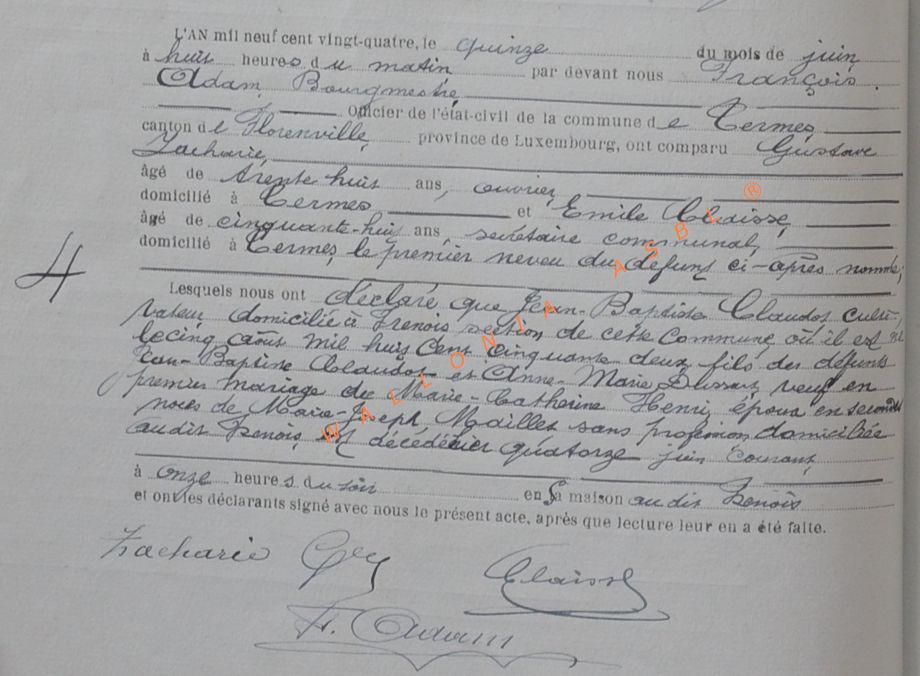 L'AN mil neuf cent vingt-quatre, le quinze du mois de juin
à huit heures du matin par devant nous François
Adam, Bourgmestre,
Officier de l'état-civil de la commune de Termes,
canton de Florenville, province de Luxembourg, ont comparu Gustave
Zacharie,
âgé de trente huit ans, ouvrier,
domicilié à Termes et Emile Claisse,
âgé de cinquante-huit ans, secrétaire communal,
domicilié à Termes, le premier neveu du défunt ci-après nommé,
4
Lesquels nous ont déclaré que Jean-Baptiste Claudot culti-
vateur domicilié à Frenois section de cette Commune où il est né
le cinq août mil huit cent cinquante deux, fils des défunts
Jean-Baptiste Claudot et Anne-Marie veuf en
premier mariage de Marie-Catherine Henry, époux en secondes
noces de Marie-Joseph sans profession domiciliée
audit Frenois, est décédé hier quatorze juin courant,
à onze heures du soir en sa maison audit Frenois
et ont les déclarants signé avec nous le présent acte, après que lecture leur en a été faite.
Zacharie Gve Claisse
F. Adam
WALLONIA ASBL ®